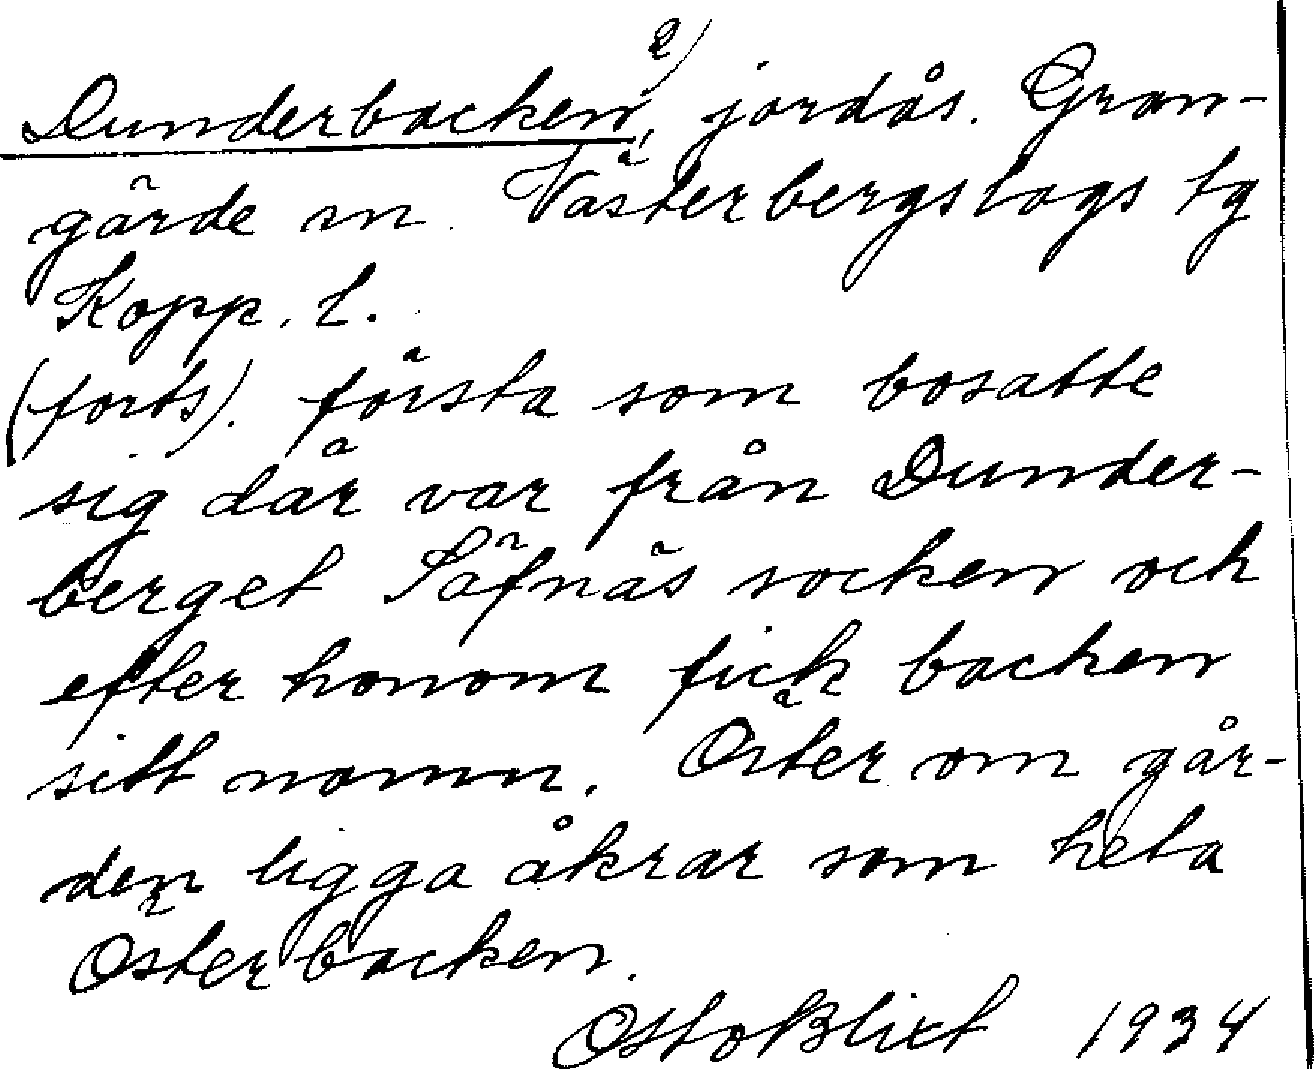 Dunderbacken, 2) jordås. Gran-
gärde sn. Västerbergslags tg
Kopp. l.
(forts). första som bosatte
sig där var från Dunder-
berget Säfnäs socken och
efter honom fick backen
sitt namn. Öster om går-
den ligga åkrar som heta
Österbacken.
Otto Blixt 1934